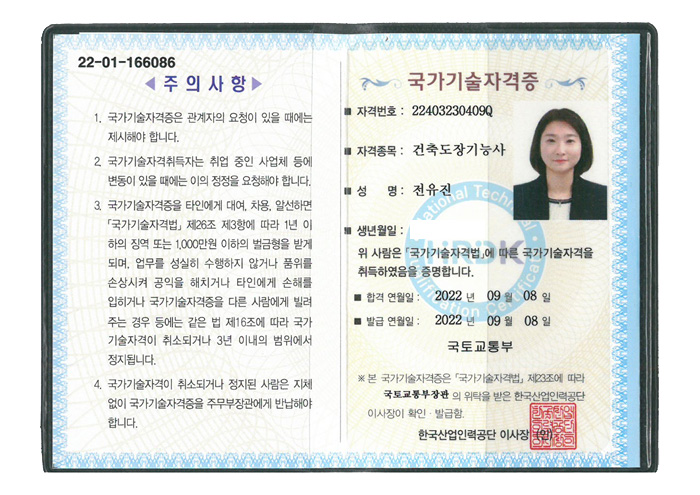 22-01-166086
◀ 주의사항 ▶
1. 국가기술자격증은 관계자의 요청이 있을 때에는
제시해야 합니다.
2. 국가기술자격취득자는 취업 중인 사업체 등에
변동이 있을 때에는 이의 정정을 요청해야 합니다.
3. 국가기술자격증을 타인에게 대여, 차용, 알선하면
「국가기술자격법」제26조 제3항에 따라 1년 이
하의 징역 또는 1,000만원 이하의 벌금형을 받게
되며, 업무를 성실히 수행하지 않거나 품위를
손상시켜 공익을 해치거나 타인에게 손해를
입히거나 국가기술자격증을 다른 사람에게 빌려
주는 경우 등에는 같은 법 제16조에 따라 국가
기술자격이 취소되거나 3년 이내의 범위에서
정지됩니다.
4. 국가기술자격이 취소되거나 정지된 사람은 지체
없이 국가기술자격증을 주무부장관에게 반납해야
합니다.
국가기술자격증
■ 자격번호 : 22403230409Q
■ 자격종목 : 건축도장기능사
■ 성 명 : 전유진
■ 생년월일 :
위 사람은「국가기술자격법」에 따른 국가기술자격을
취득하였음을 증명합니다.
■ 합격 연월일 : 2022 년 09 월 08 일
■ 발급 연월일 : 2022 년 09 월 08 일
국토교통부
※ 본 국가기술자격증은「국가기술자격법」제23조에 따라
국토교통부장관 의 위탁을 받은 한국산업인력공단
이사장이 확인·발급함.
한국산업인력공단 이사장 (인)
HRDK